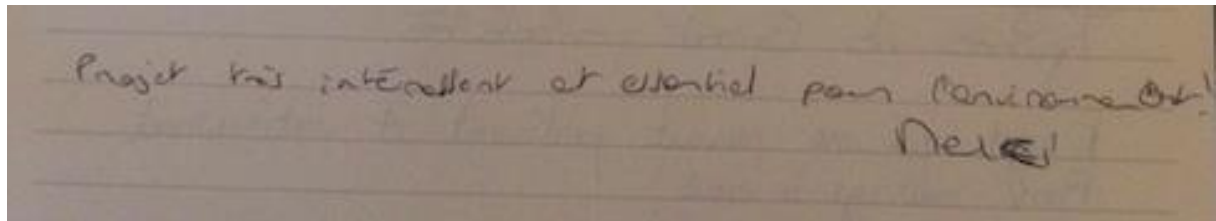 Projet très intéressant et essentiel pour l'environnement!
Merci